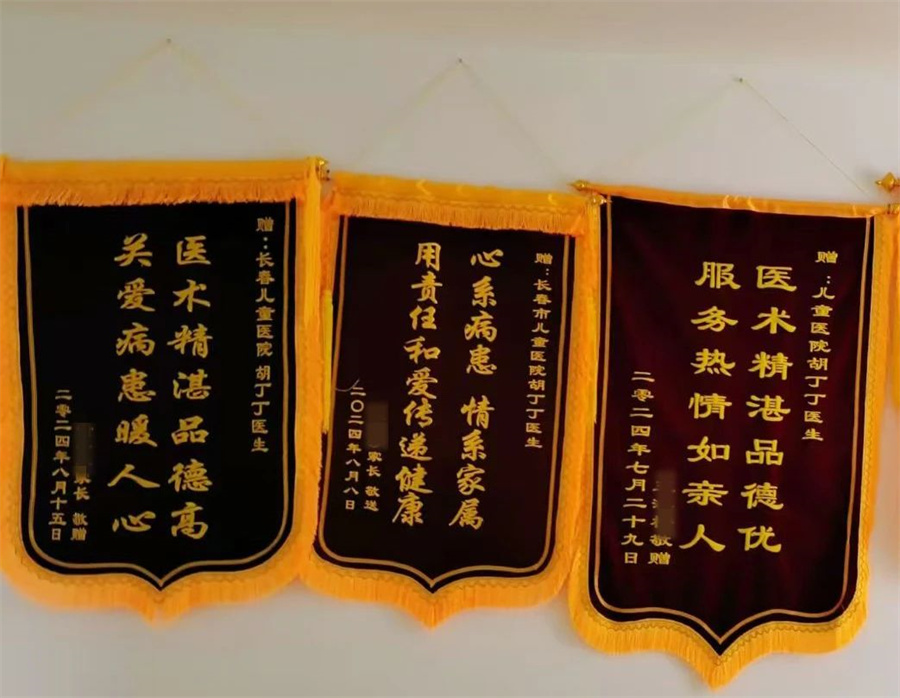 赠：长春儿童医院胡丁丁医生
医术精湛品德高
关爱病患暖人心
家长 敬赠
二零二四年八月十五日
赠：长春市儿童医院胡丁丁医生
心系病患 情系家属
用责任和爱传递健康
家长 敬送
二〇二四年八月八日
赠：儿童医院胡丁丁医生
医术精湛品德优
服务热情如亲人
敬赠
二零二四年七月二十九日